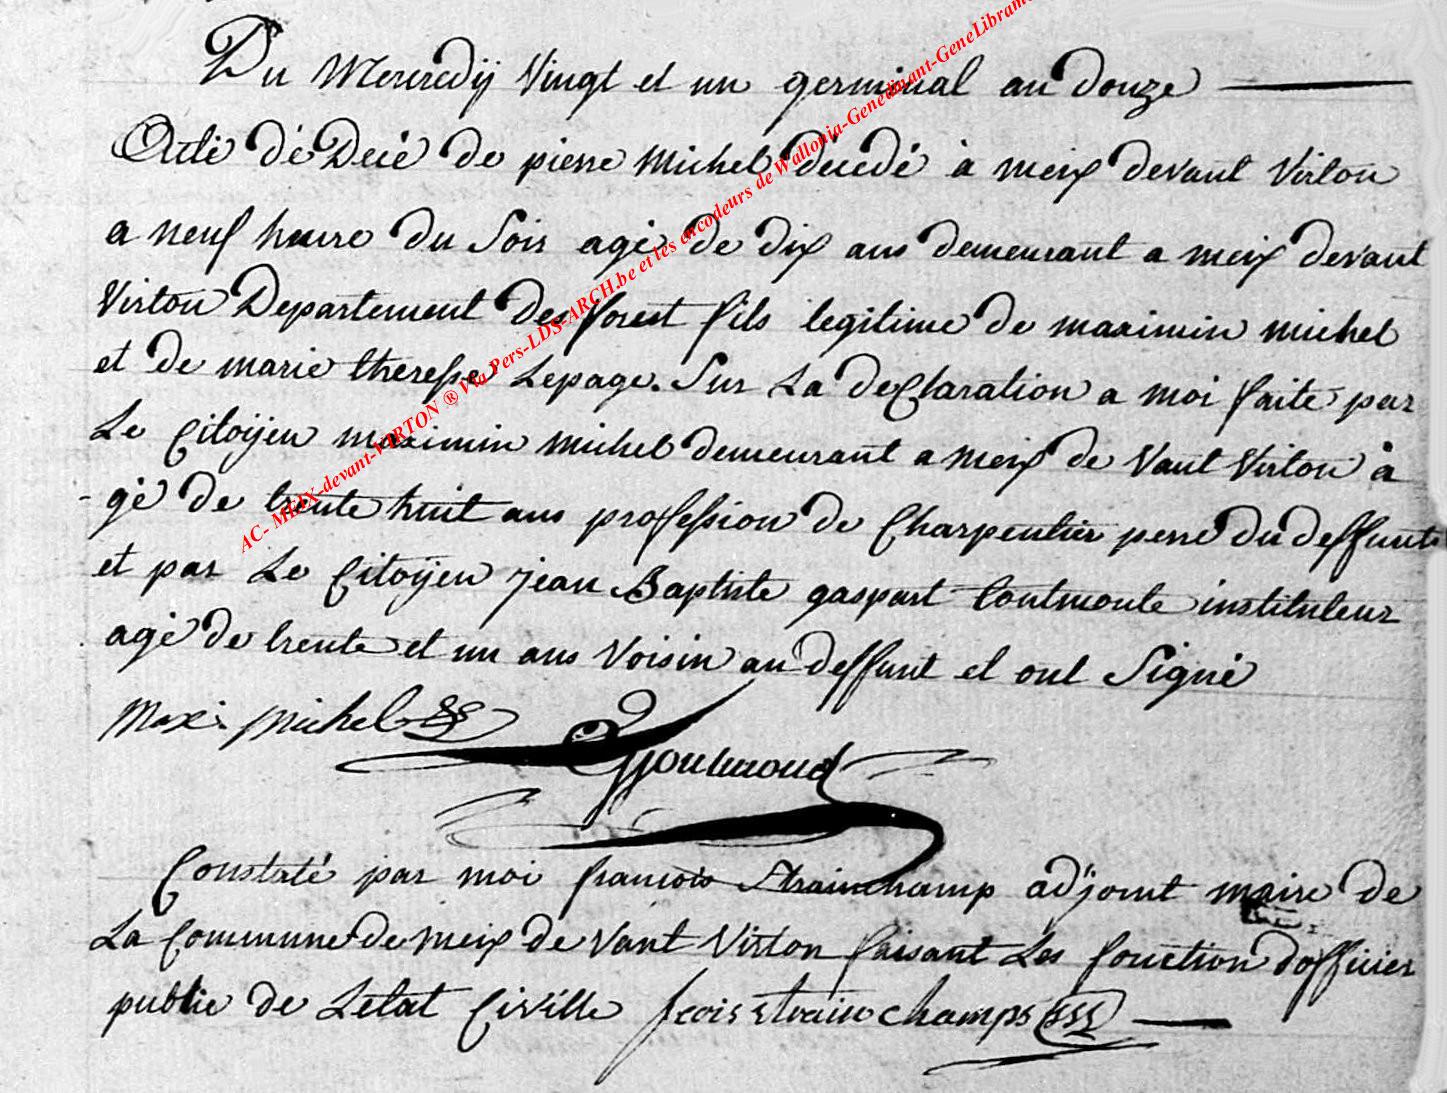 Du Mercredÿ Vingt et un germinal an douze
Acte dé Decé de pierre Michel décedé à meix devant Virton
a neuf heure du Soir agé de dix ans demeurant a meix devant
Virton Departement des forest fils legitime de maximin michel
et de marie theresse Lepage. Sur La declaration a moi faite par
Le Citoÿen maximin michel demeurant a meix de Vant Virton à
-gé de trente huit ans proffession de Charpentier perre du deffunt
et par Le Citoÿen jean Baptiste gaspart toutmonte instituteur
agé de trente et un ans Voisin au deffunt et ont Signé
Maxi. Michel
Constaté par moi francois Strainchamp adjoint maire de
La Commune de meix de Vant Virton faisant Les fonction dofficier
public de Letat Civille fcois strainchamps
AC- MEIX-devant-VIRTON ® Via Pers-LDS-ARCH.be et les encodeurs de Wallonia-Genedinant-GeneLibramo